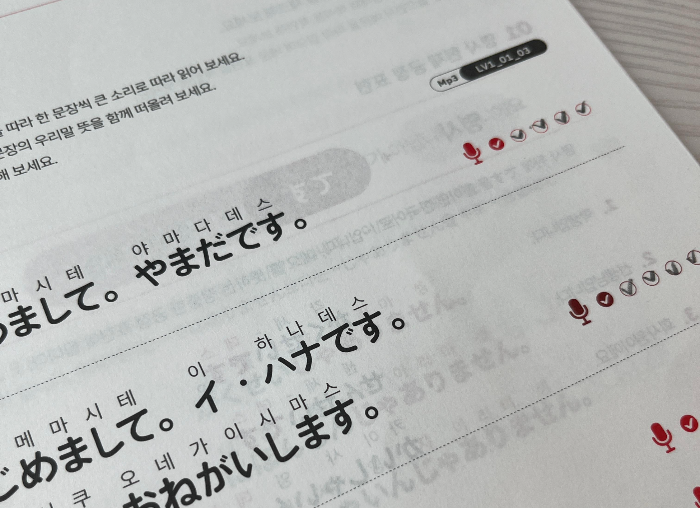 따라 한 문장씩 큰 소리로 따라 읽어 보세요.
문장의 우리말 뜻을 함께 떠올려 보세요.
해 보세요.
Mp3 LV1_01_03
마 시 테 야 마 다 데 스
ました。やまだです。
이 하 나 데 스
イ・ハナです。
메 마 시 테
じめまして。
쿠 오 네 가 이 시 마 스
おねがいします。